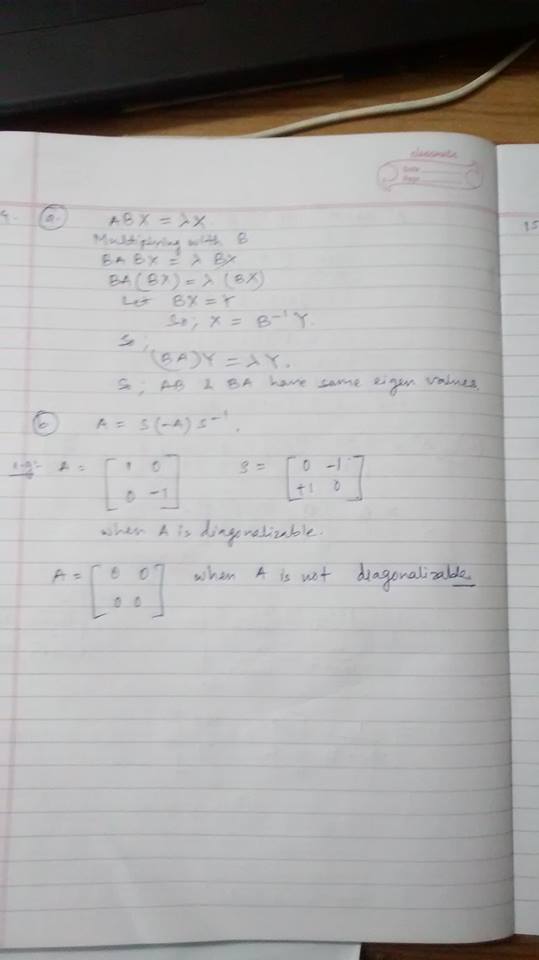 classmate
Date
Page
4. (a.) ABX = λX.
Multiplying with B
BABX = λ BX
BA(BX) = λ (BX)
Let BX = Y
So; X = B⁻¹Y.
So;
(BA)Y = λY.
So; AB & BA have same eigen values.
15
(b.) A = S(-A)S⁻¹.
e.g:- A = [1 0
0 -1] S = [0 -1
+1 0]
when A is diagonalizable.
A = [0 0
0 0] when A is not diagonalizable